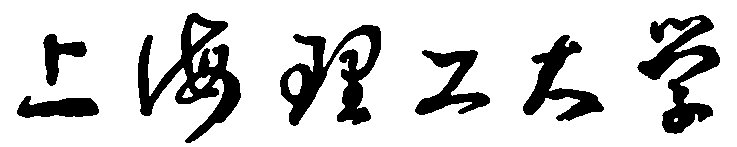 上海理工大学